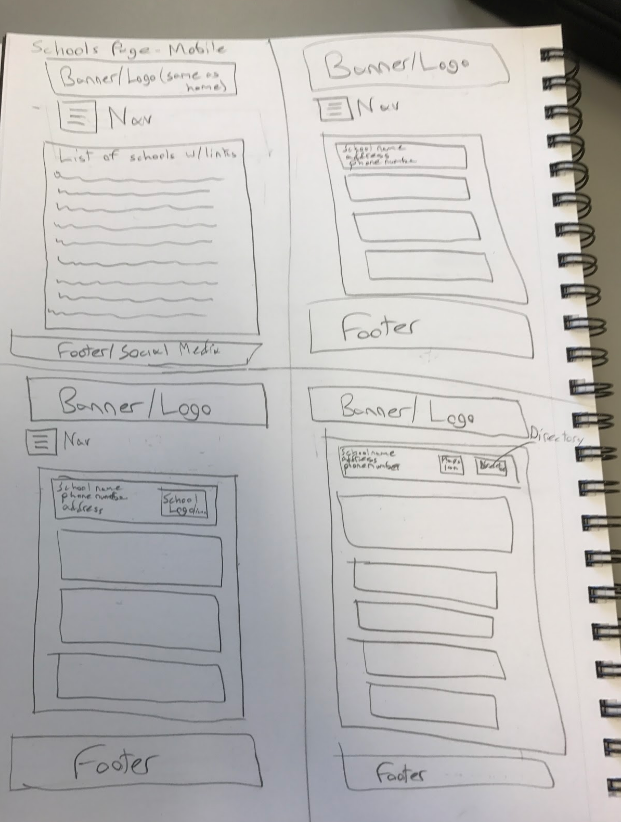 Schools Page - Mobile
Banner/Logo (same as
home)
Nav
List of schools w/links
Footer/Social Media
Banner/Logo
Nav
School name
address
phone number
Footer
Banner/Logo
Nav
School name
phone number
address
School
Footer
Banner/Logo
Directory
School name
address
phone number
Footer